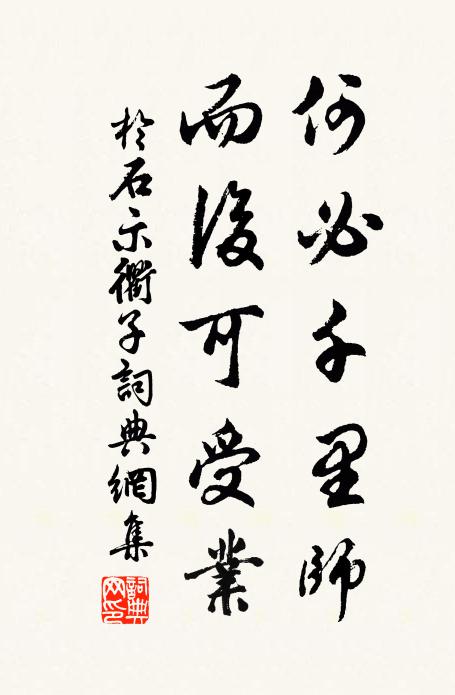 何必千里師
而後可受業
於石示衢子詞典網集
詞典網印